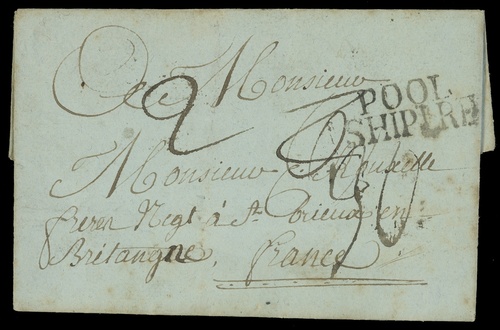 A Monsieur
POOL
SHIP LRE
Monsieur Rouxelle
Negt à St. Brieux en
Bretangne, france